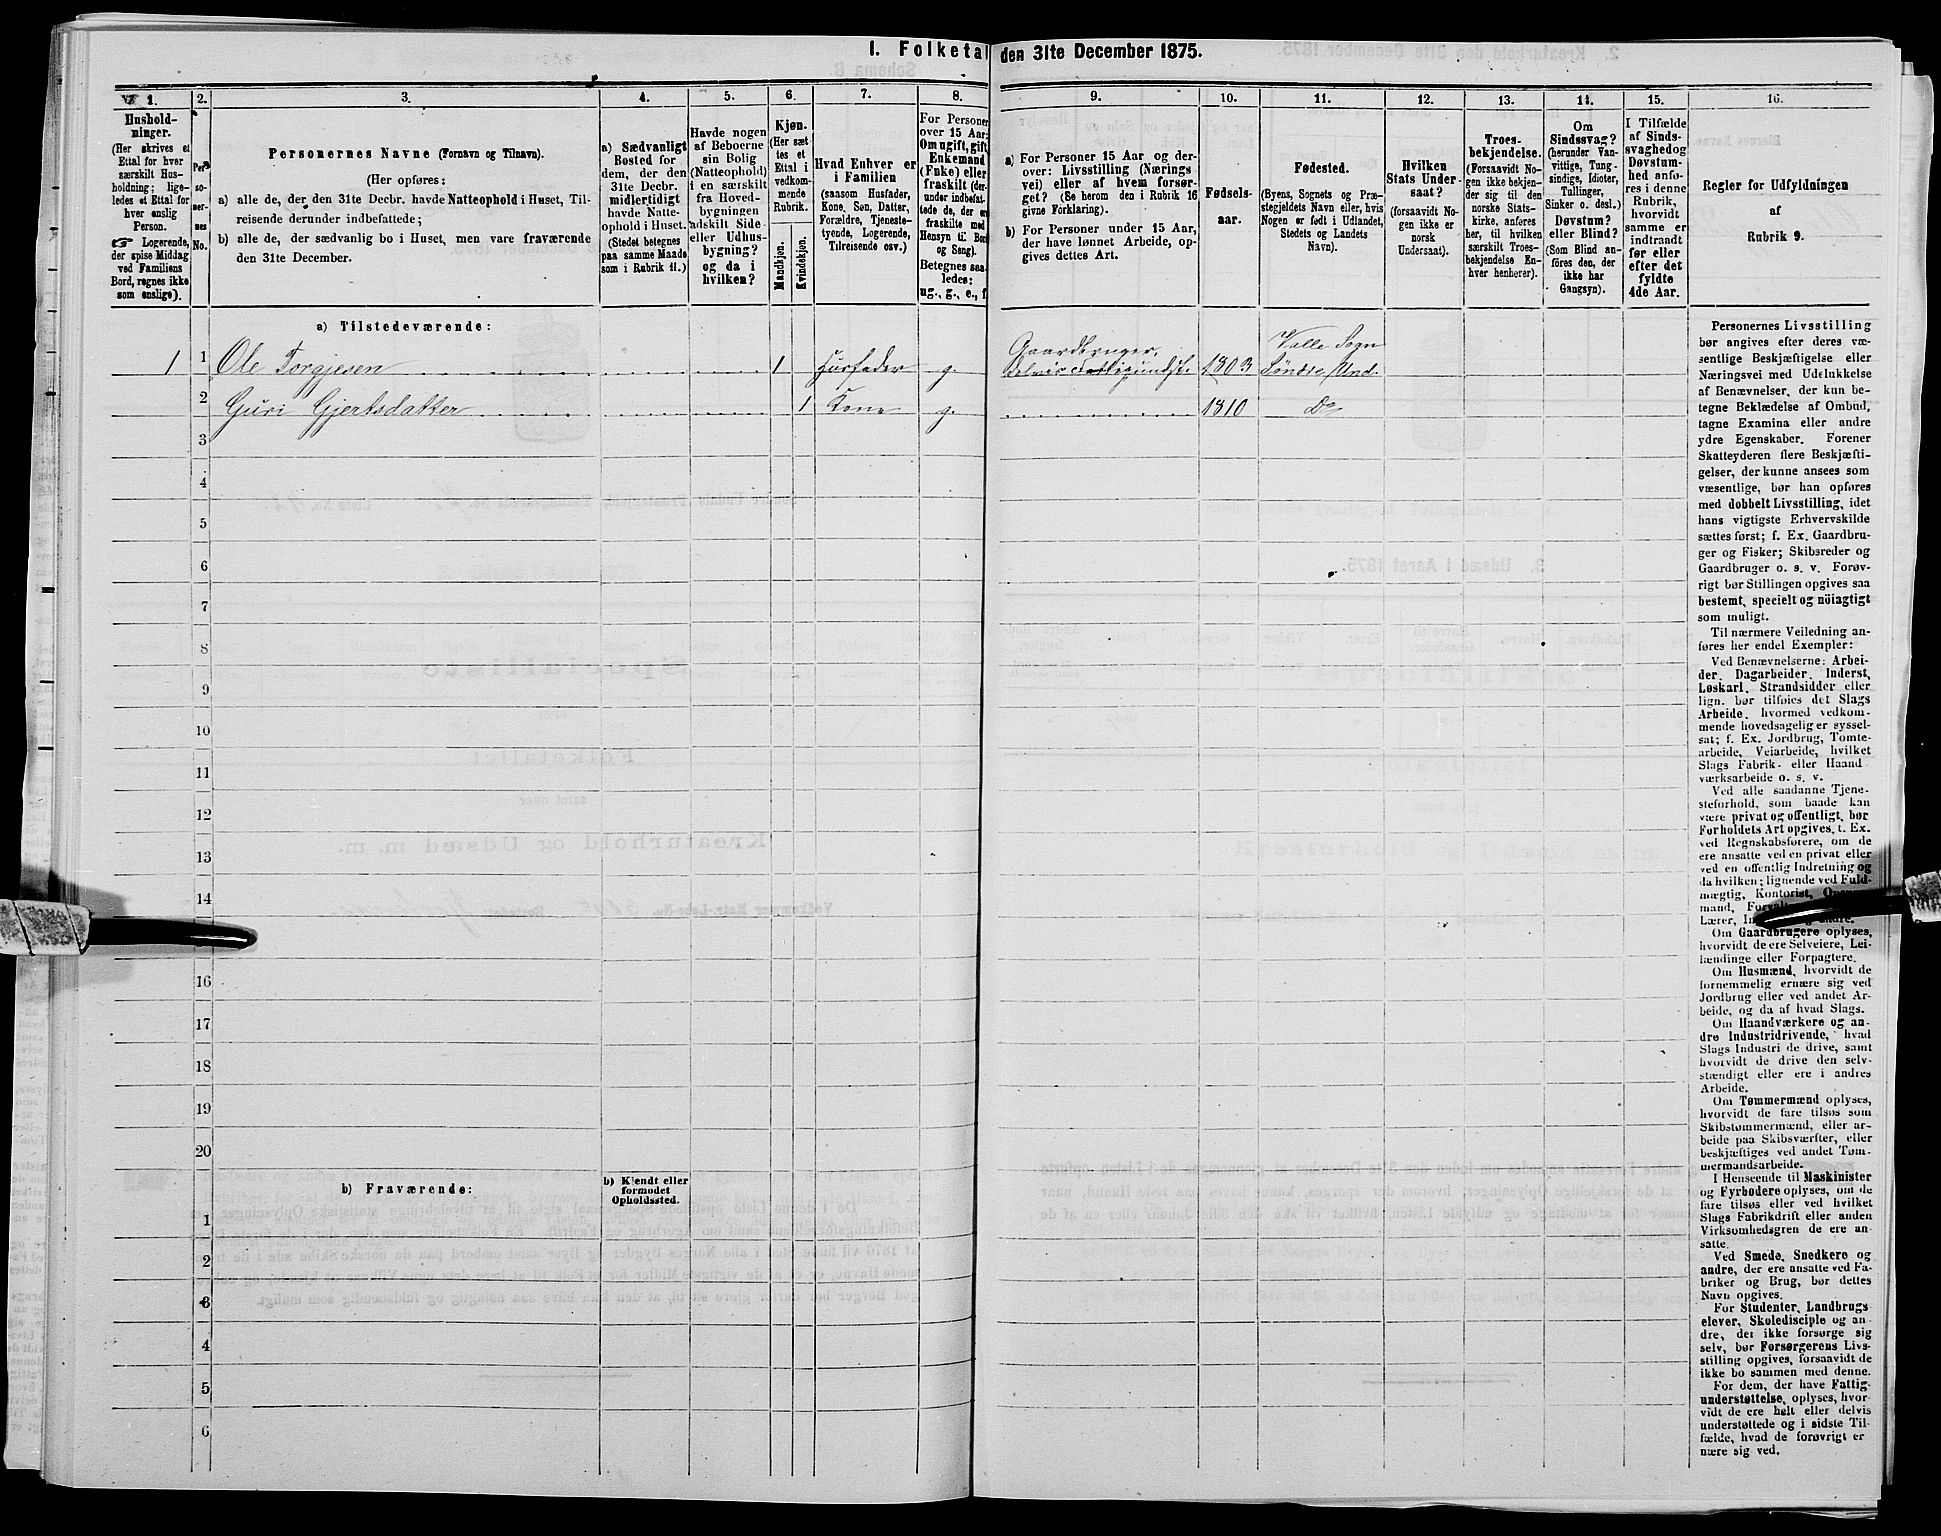 I. Folketal den 31te December 1875.
1.
Hushold-
ninger.
(Her skrives et
Ettal for hver
særskilt Hus-
holdning; lige-
ledes et Ettal for
hver enslig
Person.
☞ Logerende,
der spise Middag
ved Familiens
Bord, regnes ikke
som enslige).
2.
Per-
so-
ner-
nes
No.
3.
Personernes Navne (Fornavn og Tilnavn).
(Her opføres:
a) alle de, der den 31te Decbr. havde Natteophold i Huset, Til-
reisende derunder indbefattede;
b) alle de, der sædvanlig bo i Huset, men vare fraværende
den 31te December.
4.
a) Sædvanligt
Bosted for
dem, der den
31te Decbr.
midlertidigt
havde Natte-
ophold i Huset.
(Stedet betegnes
paa samme Maade
som i Rubrik 11.)
5.
Havde nogen
af Beboerne
sin Bolig
(Natteophold)
i en særskilt
fra Hoved-
bygningen
adskilt Side-
eller Udhus-
bygning?
og da i
hvilken?
6.
Kjøn.
(Her sæt-
tes et
Ettal i
vedkom-
mende
Rubrik.
Mandkjøn.
Kvindekjøn.
7.
Hvad Enhver er
i Familien
(saasom Husfader,
Kone, Søn, Datter,
Forældre, Tjeneste-
tyende, Logerende,
Tilreisende osv.)
8.
For Personer
over 15 Aar:
Om ugift, gift,
Enkemand
(Enke) eller
fraskilt (der-
under indbefat-
tede de, der ere
fraskilte med
Hensyn til Bord
og Seng).
Betegnes saa-
ledes:
ug., g., e., f.
9.
a) For Personer 15 Aar og der-
over: Livsstilling (Nærings-
vei) eller af hvem forsør-
get? (Se herom den i Rubrik 16
givne Forklaring).
b) For Personer under 15 Aar,
der have lønnet Arbeide, op-
gives dettes Art.
10.
Fødsels-
aar.
11.
Fødested.
(Byens, Sognets og Præ-
stegjeldets Navn eller, hvis
Nogen er født i Udlandet,
Stedets og Landets
Navn).
12.
Hvilken
Stats Under-
saat?
(forsaavidt No-
gen ikke er
norsk
Undersaat).
13.
Troes-
bekjendelse.
(Forsaavidt No-
gen ikke bekjen-
der sig til den
norske Stats-
kirke, anføres
her, til hvilken
særskilt Troes-
bekjendelse En-
hver henhører).
14.
Om
Sindssvag?
(herunder Van-
vittige, Tung-
sindige, Idioter,
Tullinger,
Sinker o. desl.)
Døvstum?
eller Blind?
(Som Blind an-
føres den, der
ikke har
Gangsyn).
15.
I Tilfælde
af Sinds-
svaghed og
Døvstum-
hed anfø-
res i denne
Rubrik,
hvorvidt
samme er
indtraadt
før eller
efter det
fyldte
4de Aar.
16.
Regler for Udfyldningen
af
Rubrik 9.
a) Tilstedeværende:
1 1 Ole Torgjesen 1 Husfader g. Gaardbruger, delvis Fattigundst. 1803 Valle Sogn Søndre Und.
2 Guri Gjertsdatter 1 Kone g. 1810 Do
3
4
5
6
7
8
9
10
11
12
13
14
16
17
18
19
20
b) Fraværende:
b) Kjendt eller
formodet
Opholdssted.
1
2
3
4
5
6
Personernes Livsstilling
bør angives efter deres væ-
sentlige Beskjæftigelse eller
Næringsvei med Udelukkelse
af Benævnelser, der kun be-
tegne Beklædelse af Ombud,
tagne Examina eller andre
ydre Egenskaber. Forener
Skatteyderen flere Beskjæfti-
gelser, der kunne ansees som
væsentlige, bør han opføres
med dobbelt Livsstilling, idet
hans vigtigste Erhvervskilde
sættes først; f. Ex. Gaardbru-
ger og Fisker; Skibsreder og
Gaardbruger o. s. v. Forøv-
rigt bør Stillingen opgives saa
bestemt, specielt og nöiagtigt
som muligt.
Til nærmere Veiledning an-
føres her endel Exempler:
Ved Benævnelserne: Arbei-
der, Dagarbeider, Inderst,
Løskarl, Strandsidder eller
lign. bør tilføies det Slags
Arbeide, hvormed vedkom-
mende hovedsagelig er syssel-
sat; f. Ex. Jordbrug, Tomte-
arbeide, Veiarbeide, hvilket
Slags Fabrik- eller Haand-
værksarbeide o. s. v.
Ved alle saadanne Tjene-
steforhold, som baade kan
være privat og offentligt, bør
Forholdets Art opgives, t. Ex.
ved Regnskabsførere, om de
ere ansatte ved en privat eller
ved en offentlig Indretning og
da hvilken; lignende ved Fuld-
mægtig, Kontorist,
mand,
Lærer,
Om Gaardbrugere oplyses,
hvorvidt de ere Selveiere, Lei-
lændinge eller Forpagtere.
Om Husmænd, hvorvidt de
fornemmelig ernære sig ved
Jordbrug eller ved andet Ar-
beide, og da af hvad Slags.
Om Haandværkere og an-
dre Industridrivende, hvad
Slags Industri de drive, samt
hvorvidt de drive den selv-
stændigt eller ere i andres
Arbeide.
Om Tømmermænd oplyses,
hvorvidt de fare tilsøs som
Skibstømmermænd, eller ar-
beide paa Skibsværfter, eller
beskjæftiges ved andet Tøm-
mermandsarbeide.
I Henseende til Maskinister
og Fyrbødere oplyses, om de
fare tilsøs eller ved hvilket
Slags Fabrikdrift eller anden
Virksomhedsgren de ere an-
satte.
Ved Smede, Snedkere og
andre, der ere ansatte ved Fa-
briker og Brug, bør dettes
Navn opgives.
For Studenter, Landbrugs-
elever, Skoledisciple og an-
dre, der ikke forsørge sig
selv, bør Forsørgerens Livs-
stilling opgives, forsaavidt de
ikke bo sammen med denne.
For dem, der have Fattig-
understøttelse, oplyses, hvor-
vidt de ere helt eller delvis
understøttede og i sidste Til-
fælde, hvad de forøvrigt er-
nære sig ved.